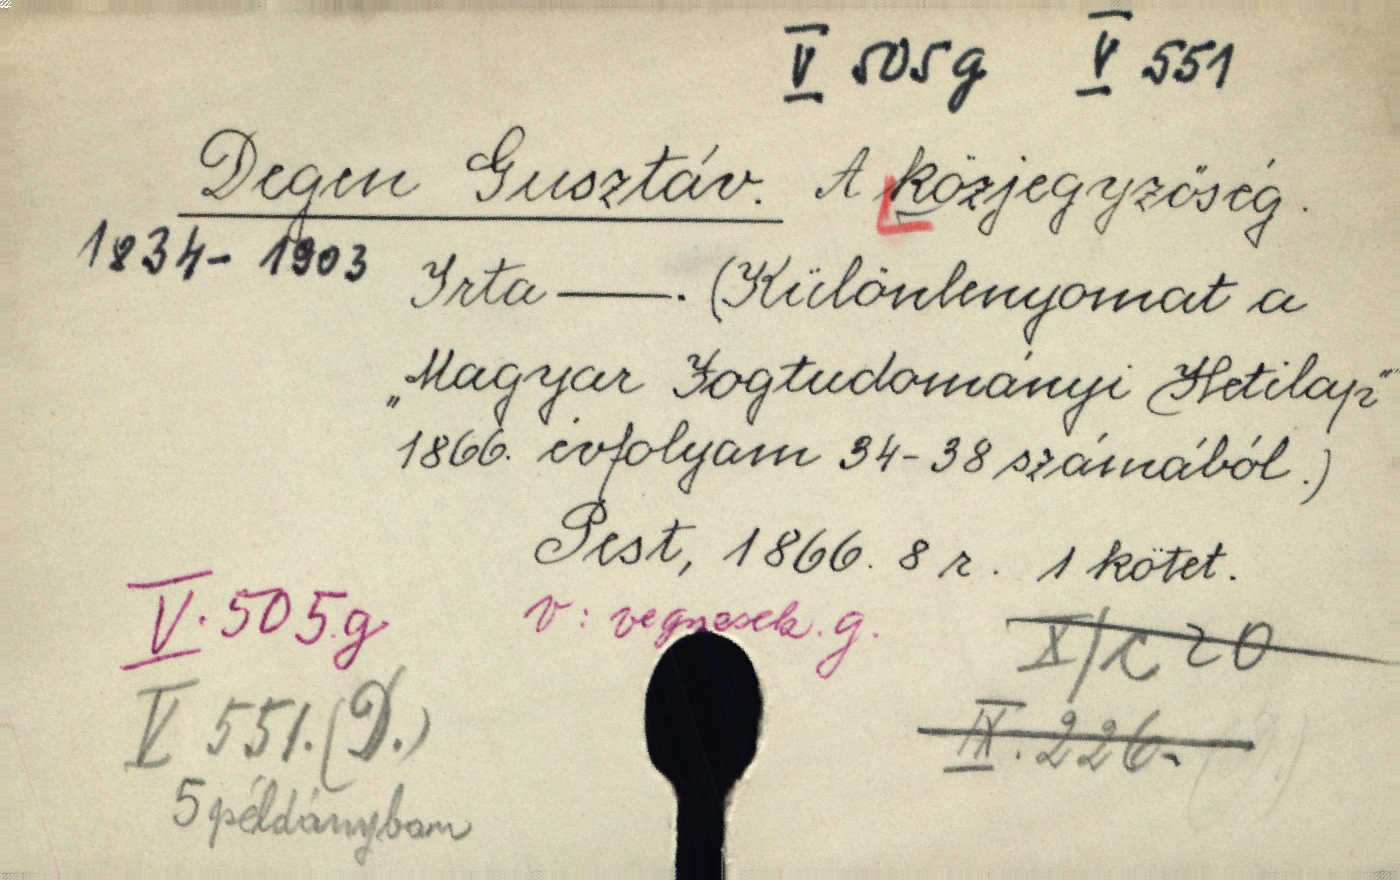 V 505g V 551
Degen Gusztáv. A közjegyzőség.
1834-1903
Irta —. (Különlenyomat a
„Magyar Jogtudományi Hetilap"
1866. évfolyam 34-38 számából.)
Pest, 1866. 8 r. 1 kötet.
V. 505.g v: vegyesek. g.
X/c 20
V 551. (D.)
IX. 226.
5 példányban